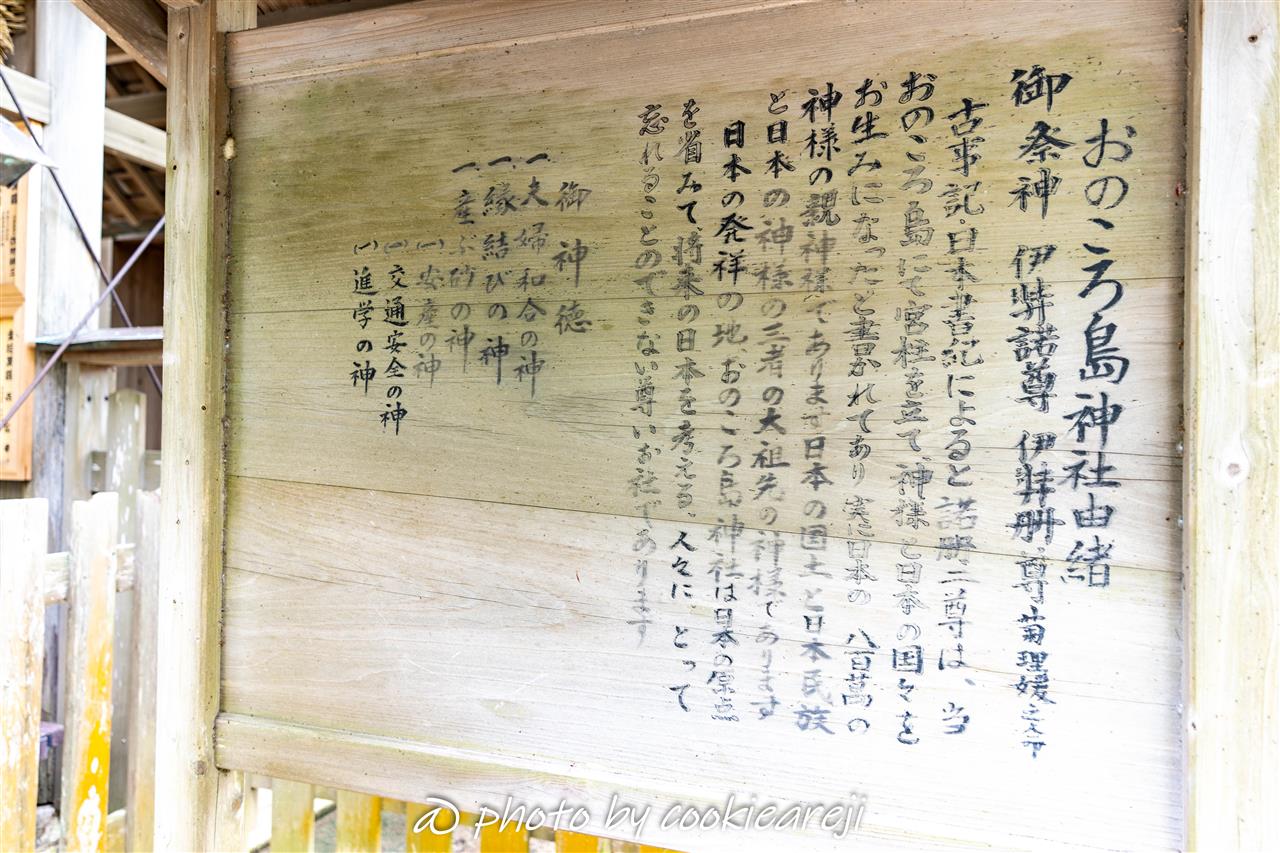 おのころ島神社由緒
御祭神 伊弉諾尊 伊弉册尊 菊理媛之命
古事記・日本書紀によると諾册二尊は、当
おのころ島にて宮柱を立て、神様と日本の国々を
お生みになったと書かれてあり実に日本の八百萬の
神様の親神様であります日本の国土と日本民族
と日本の神様の三者の大祖先の神様であります
日本の発祥の地、おのころ島神社は日本の原点
を省みて、将来の日本を考える、人々に、とって
忘れることのできない尊いお社であります
御神徳
一、夫婦和合の神
一、縁結びの神
一、産ぶ砂の神
(一)安産の神
(一)交通安全の神
(一)進学の神
@ photo by cookieareji